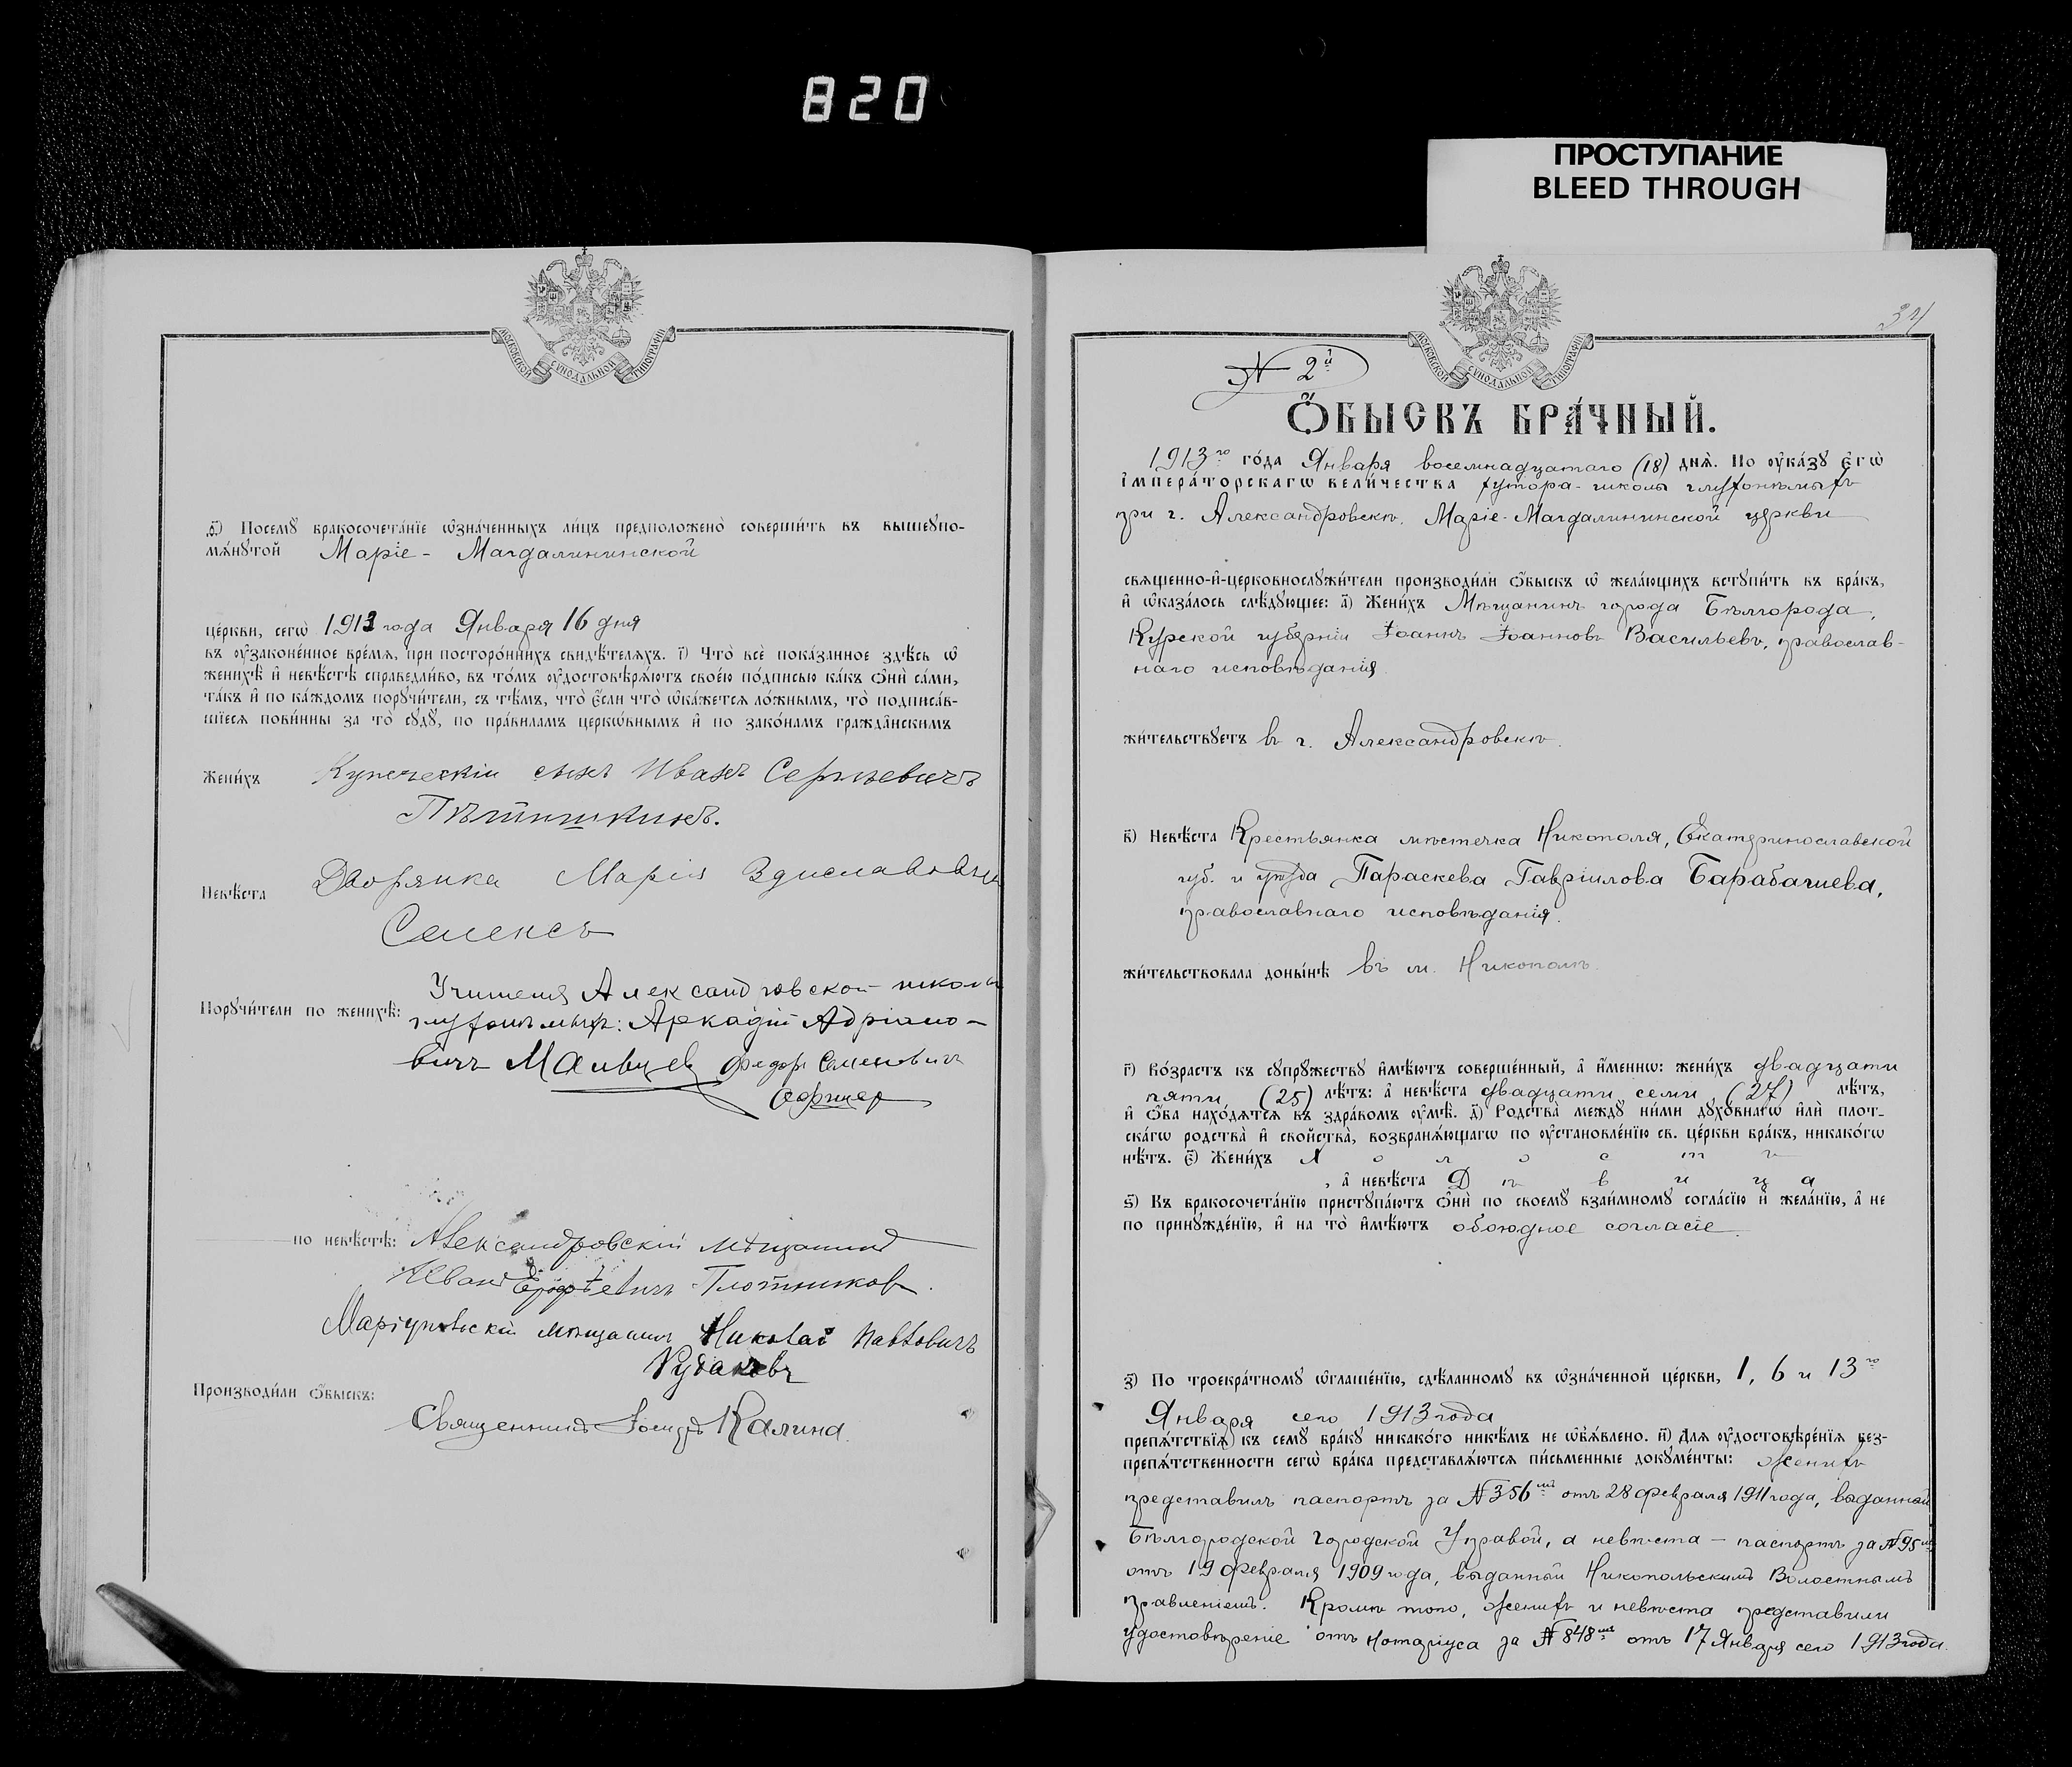 820
ПРОСТУПАНИЕ
BLEED THROUGH
МОСКОВСКОЙ СѴНОДАЛЬНОЙ ТИПОГРАФІИ
ѳ҃) Посемꙋ̀ бракосочета́нїе ѡ҆зна́ченныхъ ли́цъ предположено̀ соверши́ть въ вышеꙋпо-
мѧ́нꙋтой Маріе - Магдалининской
це́ркви, сегѡ̀ 1913 года Января 16 дня
въ ᲂу҆законе́нное вре́мѧ, при посторо́ннихъ свидѣ́телѧхъ. і҃) Что̀ всѐ пока́занное здѣ́сь ѡ҆
женихѣ̀ и҆ невѣ́стѣ справедли́во, въ то́мъ ᲂу҆достовѣрѧ́ютъ свое́ю по́дписью ка́къ ѻ҆нѝ са́ми,
та́къ и҆ по ка́ждомъ порꙋчи́тели, съ тѣ́мъ, что̀ є҆́сли что̀ ѡ҆ка́жетсѧ ло́жнымъ, то̀ подписа́в-
шїесѧ пови́нны за то̀ сꙋдꙋ̀, по пра́виламъ церкѡ́внымъ и҆ по зако́намъ гражда́нскимъ
Жени́хъ Купеческій сынъ Иванъ Сергѣевичъ
Пѣтишкинъ.
Невѣ́ста Дворянка Марія Здиславовна
Селенсъ
Порꙋчи́тели по женихѣ̀: Учителя Александровской школы
глухонѣмыхъ: Аркадій Адріано-
вичъ Мальцев Федоръ Семеновичъ
по невѣ́стѣ: Александровскій мѣщанинъ
Иванъ Ерофѣевичъ Плотниковъ.
Маріупольскій мѣщанинъ Николай Павловичъ
Рудаковъ
Производи́ли ѻ҆́быскъ:
Священникъ Іосифъ Калина.
34
МОСКОВСКОЙ СѴНОДАЛЬНОЙ ТИПОГРАФІИ
№ 2й
Ѻ҆́БЫСКЪ БРА́ЧНЫЙ.
1913го го́да Января восемнадцатаго (18) днѧ̀. По ᲂу҆ка́зꙋ Є҆гѡ̀
І҆мпера́торскагѡ вели́чества хутора-школы глухонѣмыхъ
при г. Александровскѣ, Маріе-Магдалининской церкви
свѧщенно-и҆-церковнослꙋжи́тели производи́ли ѻ҆́быскъ ѡ҆ жела́ющихъ встꙋпи́ть въ бра́къ,
и҆ ѡ҆каза́лось слѣ́дꙋющее: а҃) Жени́хъ Мѣщанинъ города Бѣлгорода,
Курской губерніи Іоаннъ Іоанновъ Васильевъ, православ-
наго исповѣданія
жи́тельствꙋетъ въ г. Александровскѣ.
в҃) Невѣ́ста Крестьянка мѣстечка Никополя, Екатеринославской
губ. и уѣзда Параскева Гавріилова Барабачиева,
православнаго исповѣданія.
жи́тельствовала доны́нѣ въ м. Никополѣ.
г҃) Во́зрастъ къ сꙋпрꙋ́жествꙋ и҆мѣ́ютъ соверше́нный, а҆ и҆́меннѡ: жени́хъ двадцати
пяти (25) лѣ́тъ: а҆ невѣ́ста двадцати семи (27) лѣ́тъ,
и҆ ѻ҆́ба нахо́дѧтсѧ въ здра́вомъ ᲂу҆мѣ̀. д҃) Родства̀ междꙋ̀ ни́ми дꙋхо́внагѡ и҆лѝ плот-
ска́гѡ родства̀ и҆ свойства̀, возбранѧ́ющагѡ по ᲂу҆становле́нїю св. це́ркви бра́къ, никако́гѡ
нѣ́тъ. є҃) Жени́хъ Холостъ
, а҆ невѣ́ста Дѣвица
ѕ҃) Къ бракосочета́нїю пристꙋпа́ютъ ѻ҆нѝ по своемꙋ̀ взаи́мномꙋ согла́сїю и҆ жела́нїю, а҆ не
по принꙋжде́нїю, и҆ на то̀ и҆мѣ́ютъ обоюдное согласіе.
з҃) По троекра́тномꙋ ѡ҆глаше́нїю, сдѣ́ланномꙋ въ ѡ҆зна́ченной це́ркви, 1, 6 и 13го
Января сего 1913 года
препѧ́тствїѧ къ семꙋ̀ бра́кꙋ никако́го никѣ́мъ не ѡ҆б̾ѧ́влено. и҃) Длѧ ᲂу҆достовѣре́нїѧ без-
препѧ́тственности сегѡ̀ бра́ка представлѧ́ютсѧ пи́сьменные докꙋме́нты: женихъ
представилъ паспортъ за № 356мъ отъ 28 февраля 1911 года, выданный
Бѣлгородской Городской Управой, а невѣста - паспортъ за № 95мъ
отъ 19 февраля 1909 года, выданный Никопольскимъ Волостнымъ
правленіемъ. Кромѣ того, женихъ и невѣста представили
удостовѣреніе отъ нотаріуса за № 848мъ отъ 17 Января сего 1913 года.